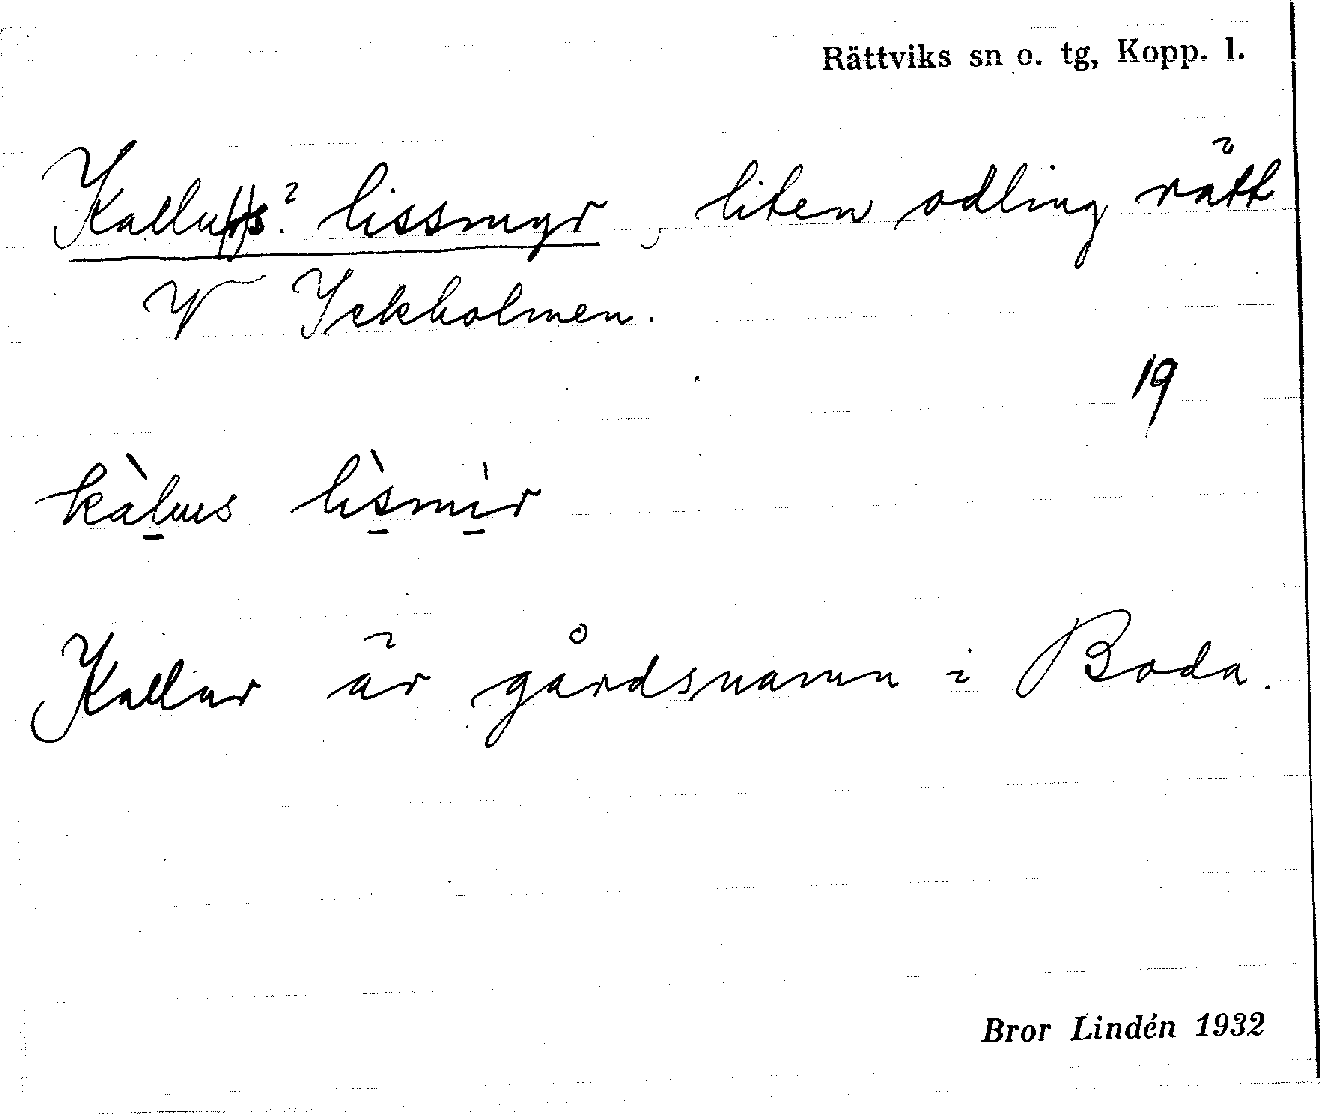 Rättviks sn o. tg, Kopp. l.
Kallu(r)s? lissmyr, liten odling rätt
V Ickholmen.
19
kàlus lìsmìr
Kallur är gårdsnamn i Boda.
Bror Lindén 1932